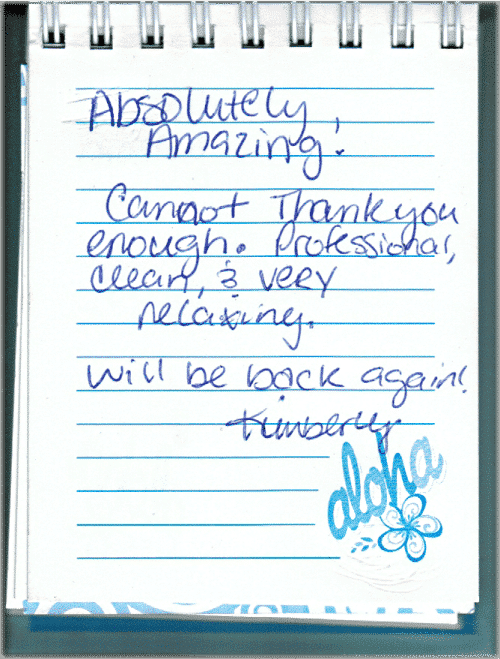 Absolutely,
Amazing!
Cannot Thank you
enough. Professional,
clean, & very
relaxing.
Will be back again!
Kimberly
aloha